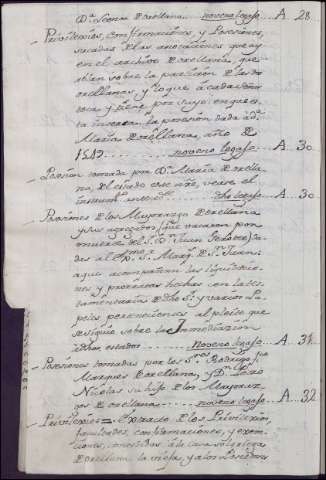 Dª Leonor de Orellana. noveno legajo A 28
Privilexios, confirmaciones, y Posesiones,
sacadas de las anotaciones que ay
en el archivo de Orellana, que
sobre la particion de los
Orellanas, y lo que a cada uno
toca y tiene por suyo, en que es-
ta inserta la posesion dada a Dª
Maria de Orellana, año de
1549 noveno legajo A 30
Posesion tomada por Dª Maria de Orella-
na, el citado este año, vease el
instrumto anterior dho legajo A 30
Posesiones de los Mayorazgos de Orellana
y sus agregados (que vacaron por
muerte del Sr Dn Juan
das al Sr Marqs de Sn Juan
a que acompañan las liquidacio-
nes y prorratas hechas con la tes-
tamentaria de dho Sr y varios pa-
peles pertenecientes al pleito que
se siguio sobre la inmediacion
a dhos estados noveno legajo A 31
Posesiones tomadas por los Sres Dn Rodrigo
Marques de Orellana, y Dn Pedro
Nicolas su hijo de los Mayoraz-
gos de Orellana noveno legajo A 32
Privilexios = Extracto de los Privilexios,
facultades, confirmaciones, y exem-
ciones, concedidas a la casa solariega
de Orellana la vieja y a los Poseedores